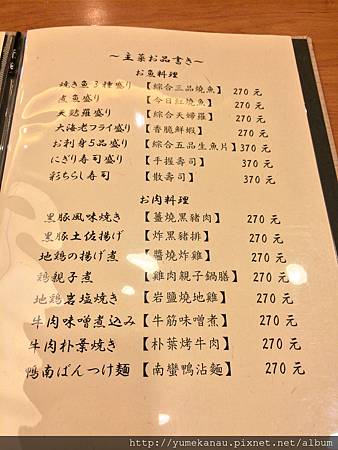 ～主菜お品書き～
お魚料理
焼き魚3種盛り【綜合三品燒魚】 270元
煮魚盛り【今日紅燒魚】 270元
天麩羅盛り【綜合天婦羅】 270元
大海老フライ盛り【香脆鮮蝦】 270元
お刺身5品盛り【綜合五品生魚片】 370元
にぎり寿司盛り【手握壽司】 370元
彩ちらし寿司【散壽司】 370元
お肉料理
黒豚風味焼き【薑燒黑豬肉】 270元
黒豚土佐揚げ【炸黑豬排】 270元
地鶏の揚げ煮【醬燒炸雞】 270元
鶏親子煮【雞肉親子鍋膳】 270元
地鶏岩塩焼き【岩鹽燒地雞】 270元
牛肉味噌煮込み【牛筋味噌煮】 270元
牛肉朴葉焼き【朴葉烤牛肉】 270元
鴨南ばんつけ麵【南蠻鴨沾麵】 270元
http://yumekanau.pixnet.net/album